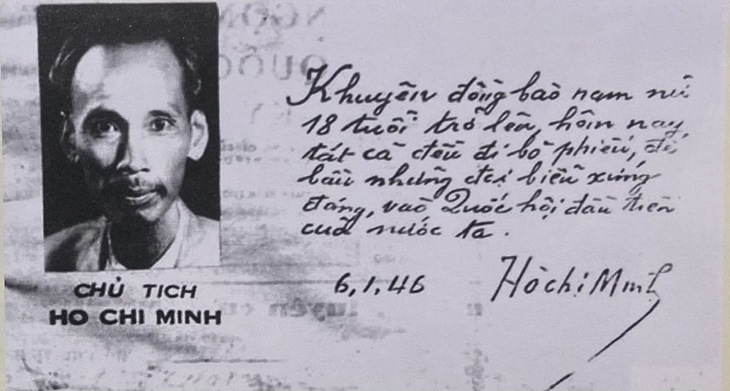 Khuyên đồng bào nam nữ
18 tuổi trở lên, hôm nay,
tất cả đều đi bỏ phiếu, để
bầu những đại biểu xứng
đáng, vào Quốc hội đầu tiên
của nước ta.
6, 1, 46 Hồ Chí Minh
CHỦ TỊCH
HO CHI MINH